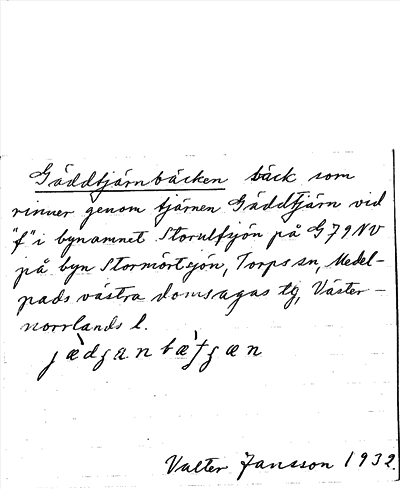 Gäddtjärnbäcken bäck som
rinner genom tjärnen Gäddtjärn vid
"f" i bynamnet Storulfsjön på G79NV
på byn Stormörtsjön, Torps sn, Medel-
pads västra domsagas tg, Väster-
norrlands l.
Valter Jansson 1932.